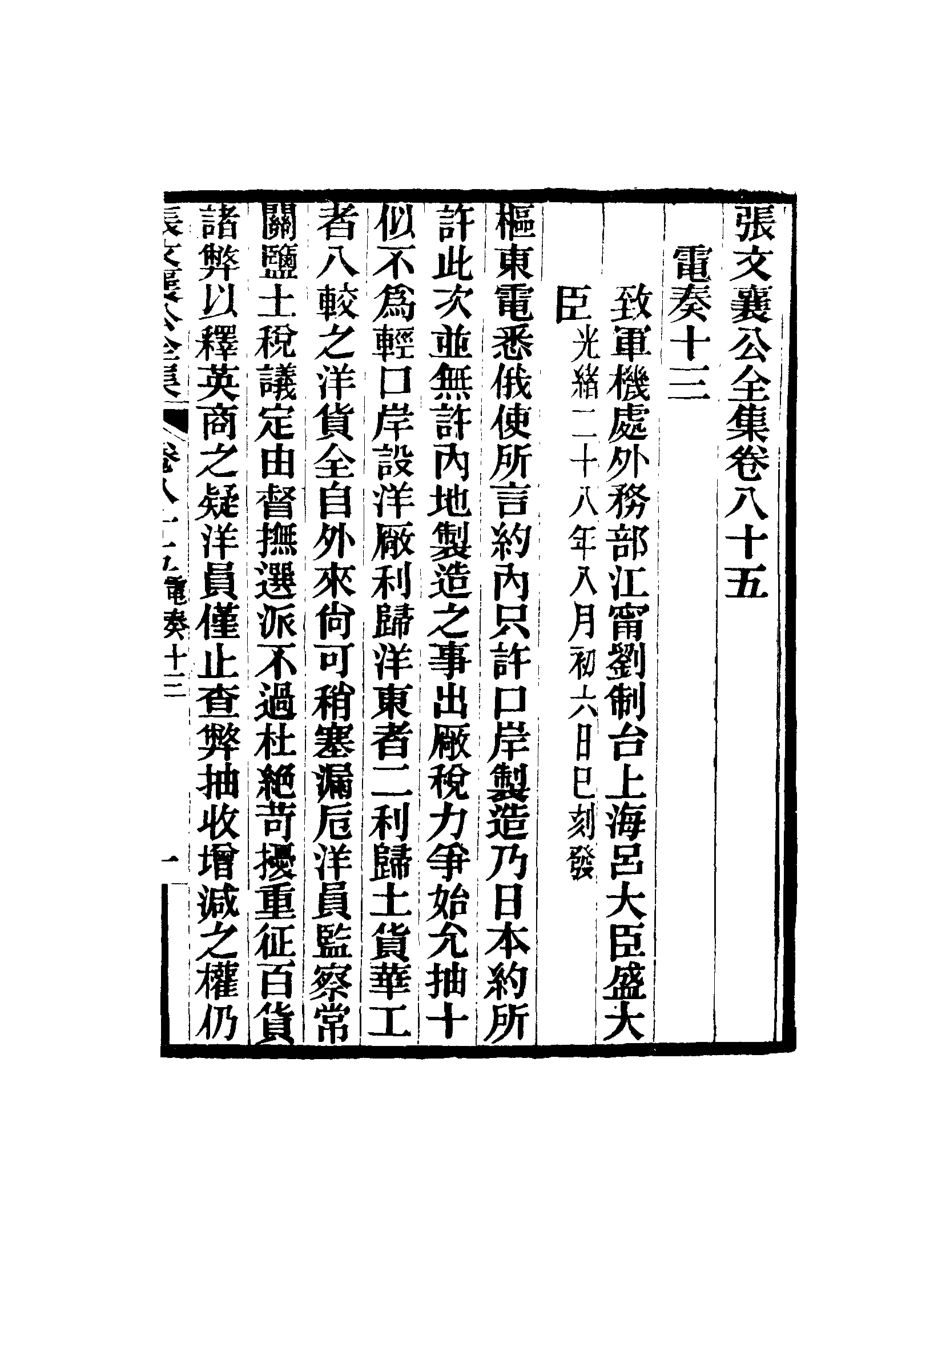 張文襄公全集卷八十五
電奏十三
致軍機處外務部江甯劉制台上海呂大臣盛大
臣光緒二十八年八月初六日巳刻發
樞東電悉俄使所言約內只許口岸製造乃日本約所
許此次並無許內地製造之事出廠稅力爭始允抽十
似不為輕口岸設洋廠利歸洋東者二利歸土貨華工
者八較之洋貨全自外來尙可稍塞漏卮洋員監察常
關鹽土稅議定由督撫選派不過杜絕苛擾重征百貨
諸弊以釋英商之疑洋員僅止查弊抽收增減之權仍
張文襄公全集 卷八十五 電奏十三 一